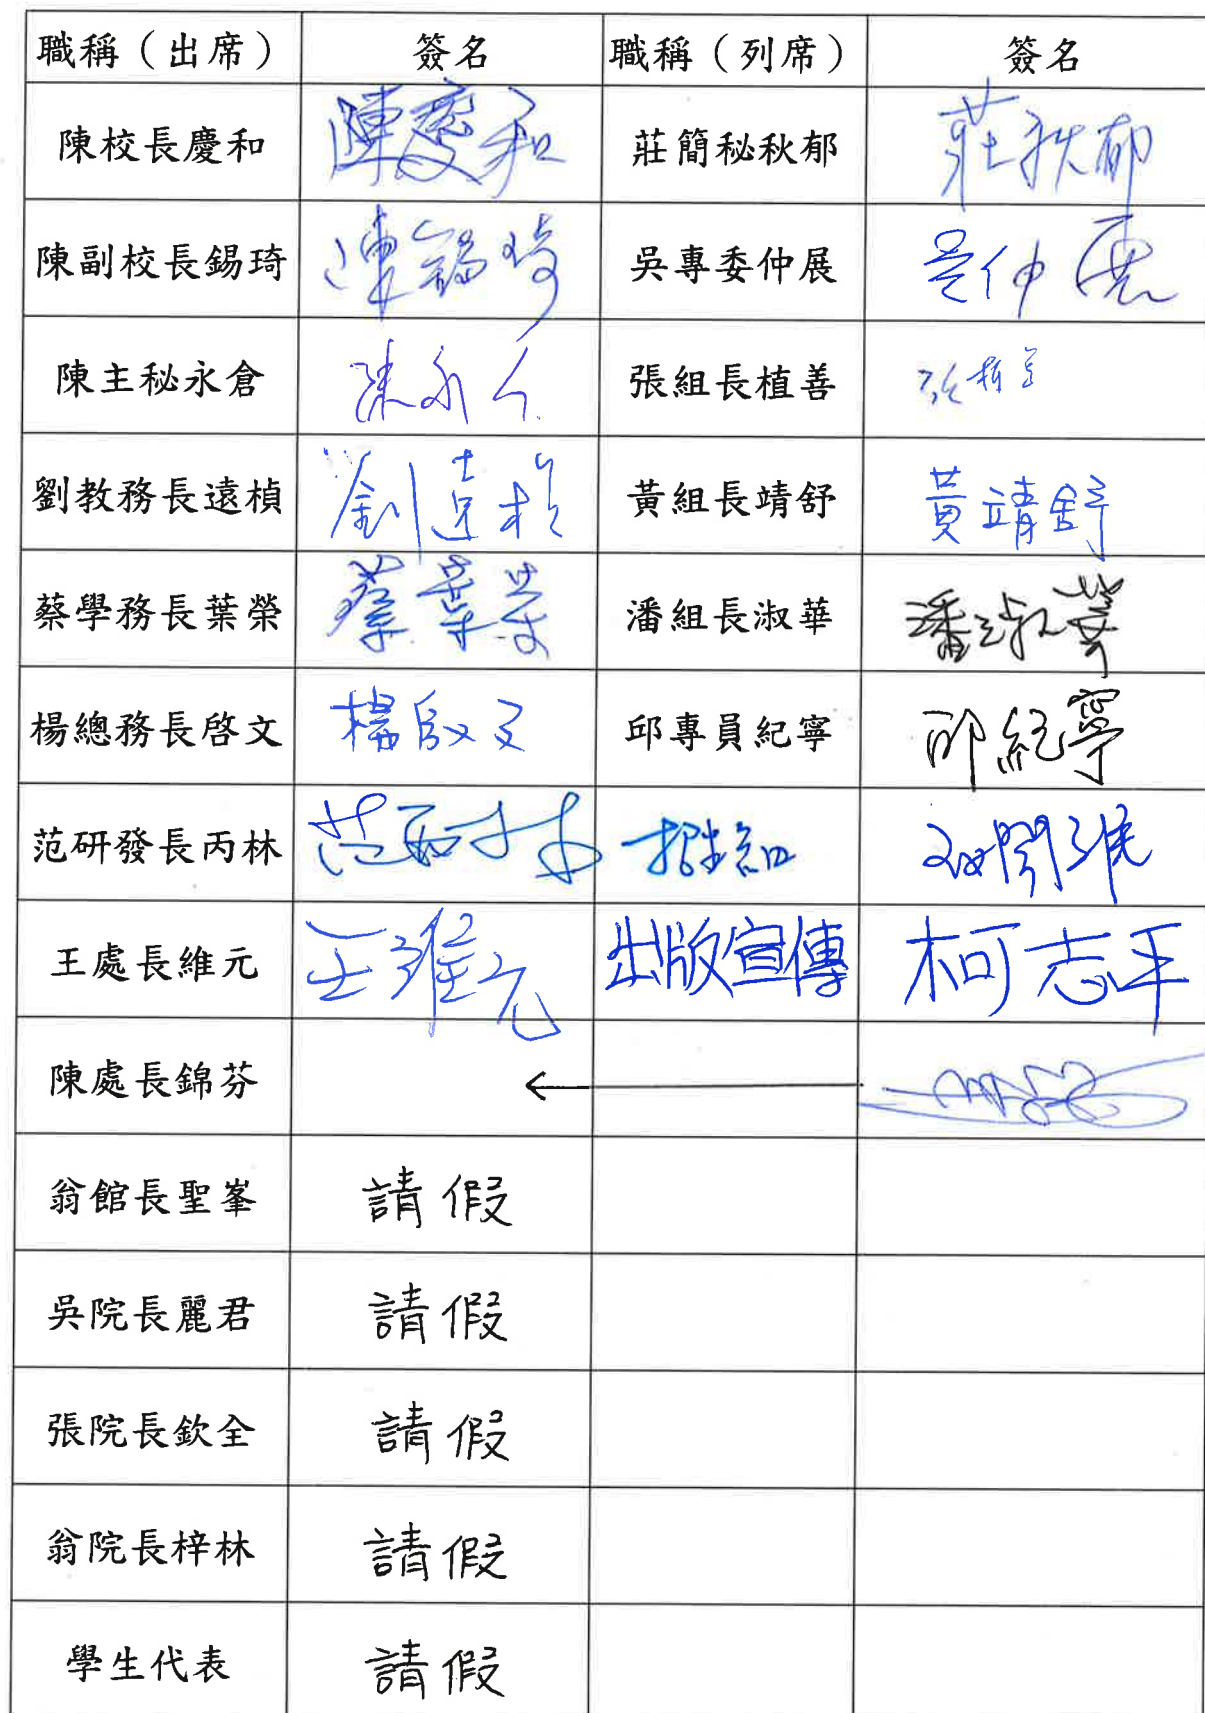 職稱（出席） 簽名 職稱（列席） 簽名
陳校長慶和 陳慶和 莊簡秘秋郁 莊秋郁
陳副校長錫琦 陳錫琦 吳專委仲展 吳仲展
陳主秘永倉 陳永仓 張組長植善 張植善
劉教務長遠楨 劉遠楨 黃組長靖舒 黃靖舒
蔡學務長葉榮 蔡葉荣 潘組長淑華 潘淑華
楊總務長啓文 楊啟文 邱專員紀寧 邱紀寧
范研發長丙林 范丙林
王處長維元 王維元 出版宣傳 柯志平
陳處長錦芬 ←
翁館長聖峯 請假
吳院長麗君 請假
張院長欽全 請假
翁院長梓林 請假
學生代表 請假